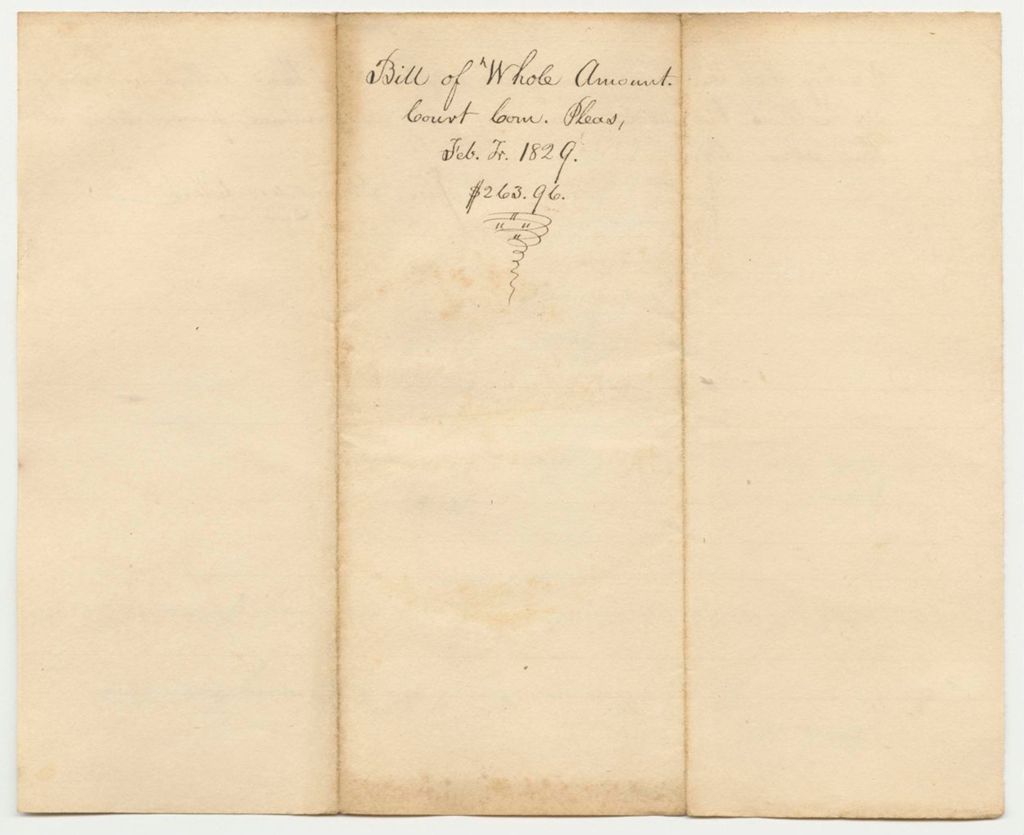 Bill of Whole Amount.
Court Com. Pleas,
Feb. Tr. 1829.
$263.96.